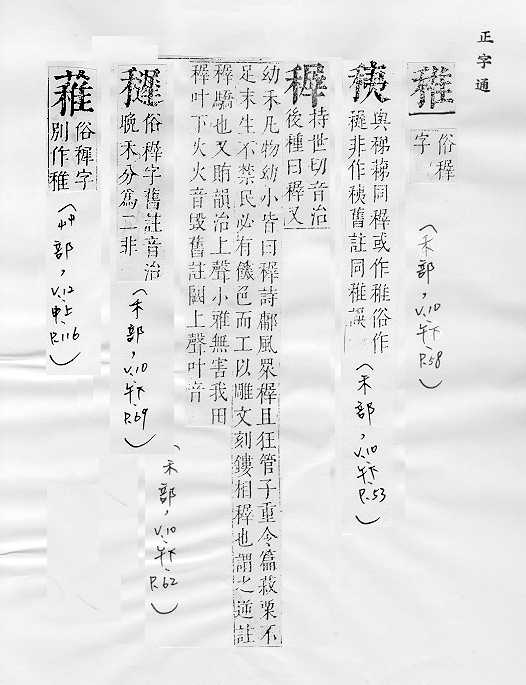 正字通
稚
俗稺
字
(禾部,V.10午下,P.58)
䄺
與稊蕛同稺或作稚俗作
䅜非作䄺舊註同稚誤
(禾部,V.10午下,P.53)
稺
持世切音治
後種曰稺又
幼禾凡物幼小皆曰稺詩鄘風眾稺且狂管子重令篇菽粟不
足末生不禁民必有饑色而工以雕文刻鏤相稺也謂之逆註
稺驕也又賄韻治上聲小雅無害我田
稺叶下火火音毀舊註闕上聲叶音
(禾部,V.10午下,P.62)
俗稺字舊註音治
晚禾分為二非
(禾部,V.10午下,P.69)
俗稺字
別作稚
(艸部,V.12申上,P.116)